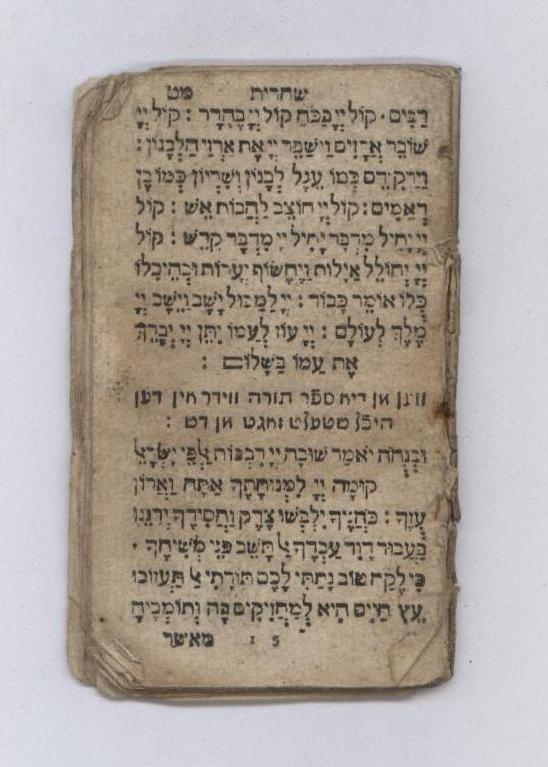 שחרית מט
רַבִּים · קוֹל יְיָ בַּכֹּחַ קוֹל יְיָ בֶּהָדָר : קוֹל יְיָ
שׁוֹבֵר אֲרָזִים וַיְשַׁבֵּר יְיָ אֶת אַרְזֵי הַלְּבָנוֹן :
וַיַּרְקִידֵם כְּמוֹ עֵגֶל לְבָנוֹן וְשִׂרְיוֹן כְּמוֹ בֶן
רְאֵמִים : קוֹל יְיָ חוֹצֵב לַהֲבוֹת אֵשׁ : קוֹל
יְיָ יָחִיל מִדְבָּר יָחִיל יְיָ מִדְבַּר קָדֵשׁ : קוֹל
יְיָ יְחוֹלֵל אַיָּלוֹת וַיֶּחֱשׂוֹף יְעָרוֹת וּבְהֵיכָלוֹ
כֻּלּוֹ אוֹמֵר כָּבוֹד : יְיָ לַמַּבּוּל יָשָׁב וַיֵּשֶׁב יְיָ
מֶלֶךְ לְעוֹלָם : יְיָ עוֹז לְעַמּוֹ יִתֵּן יְיָ יְבָרֵךְ
אֶת עַמּוֹ בַשָּׁלוֹם :
ווען אן דיא ספר תורה ווידר אין דען
היכל שטעלט זאגט אן דש :
וּבְנֻחֹה יֹאמַר שׁוּבָה יְיָ רִבְבוֹת אַלְפֵי יִשְׂרָאֵל
קוּמָה יְיָ לִמְנוּחָתֶךָ אַתָּה וַאֲרוֹן
עֻזֶּךָ : כֹּהֲנֶיךָ יִלְבְּשׁוּ צֶדֶק וַחֲסִידֶיךָ יְרַנֵּנוּ
בַּעֲבוּר דָּוִד עַבְדֶּךָ אַל תָּשֵׁב פְּנֵי מְשִׁיחֶךָ ·
כִּי לֶקַח טוֹב נָתַתִּי לָכֶם תּוֹרָתִי אַל תַּעֲזוֹבוּ
עֵץ חַיִּים הִיא לַמַּחֲזִיקִים בָּהּ וְתוֹמְכֶיהָ
15 מאשר